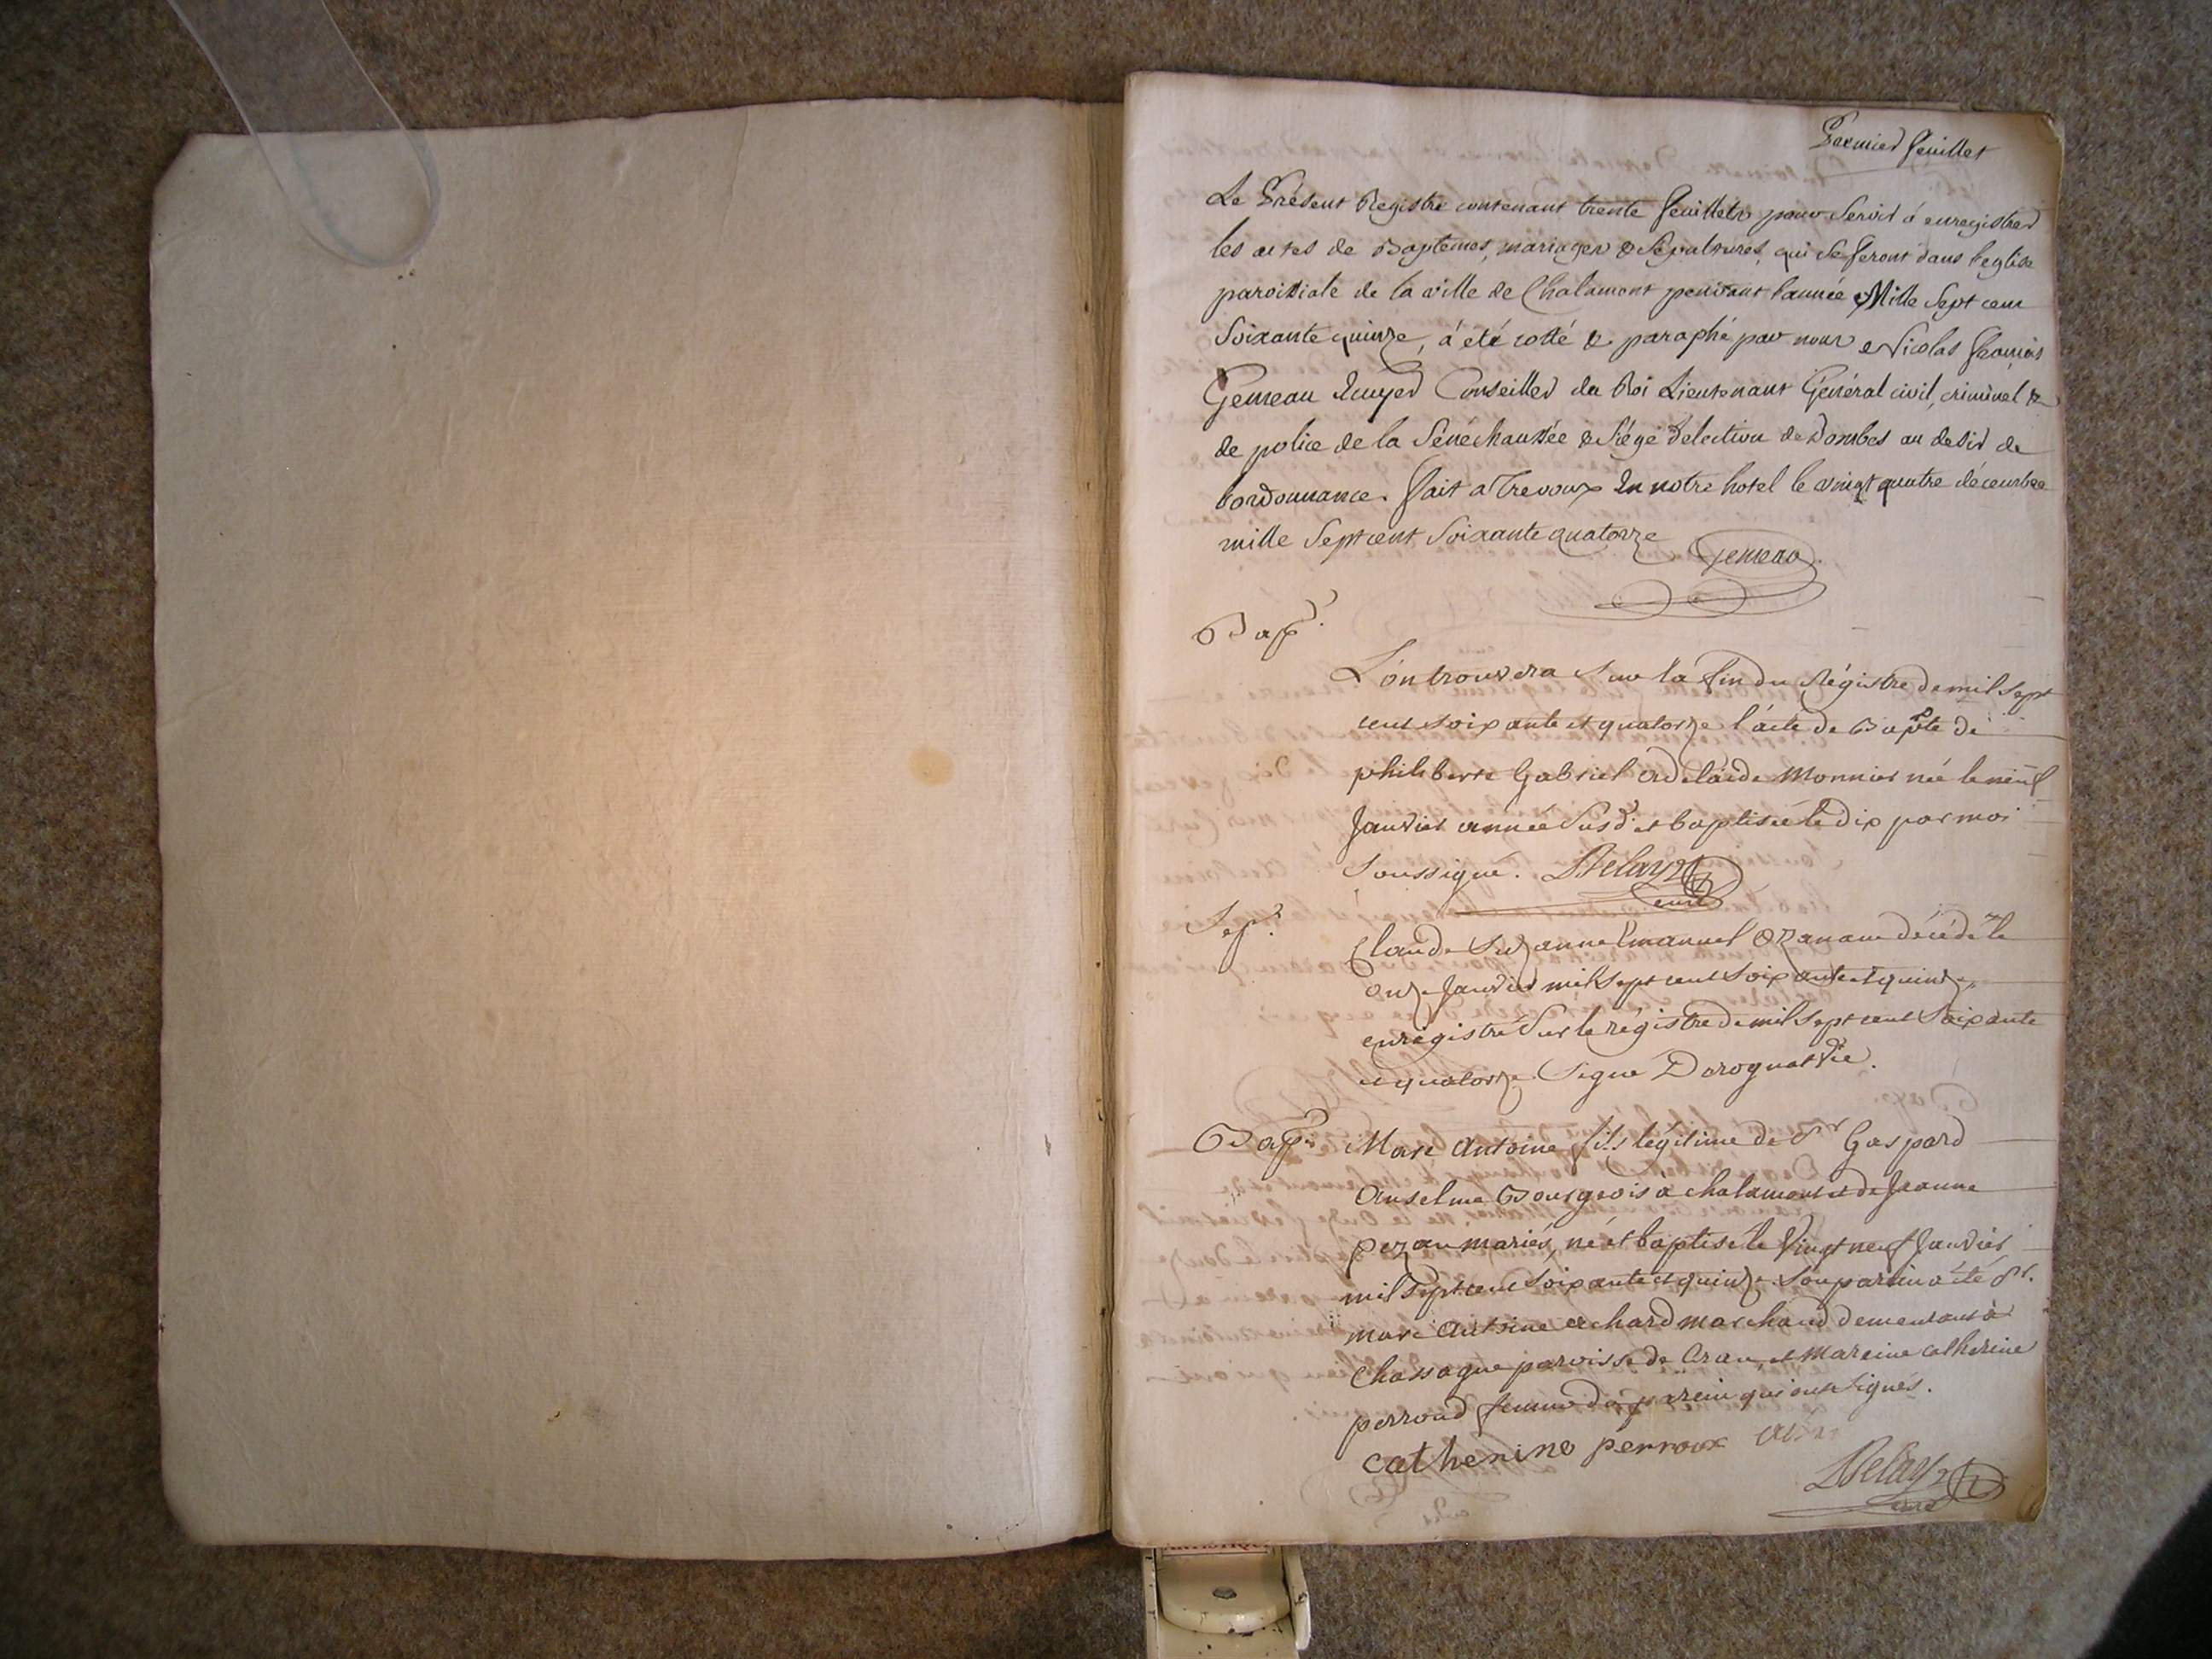 Premier feuillet
Le Présent Registre contenant trente feuillets pour Servir á enregistrer
les actes de Baptemes, mariages & Sépultures, qui se feront dans l'eglise
paroissiale de la ville de Chalamont pendant l'année Mille Sept cent
Soixante quinze, á été cotté & paraphé par nous Nicolas françois
Gemeau Ecuyer Conseiller du Roi Lieutenant Général civil, criminel &
de police de la Sénéchaussée & Siége d'election de Dombes au desir de
l'ordonnance. fait a Trevoux En notre hotel le vingt quatre décembre
mille Sept cent Soixante quatorze Gemeau.
Bap.
L'on trouvera sur la fin du Régistre de mil sept
cent soixante et quatorze l'acte de Bapte de
philiberte Gabriel Adelaïde Monnier née le neuf
Janvier année Susd. et baptisée le dix par moi
Soussigné. Delay
curé
Sep.
Claude Suzanne Emanuel Ozanam décédé le
onze Janvier mil sept cent Soixante et quinze,
enrégistré Sur le régistre de mil sept cent Soixante
et quatorze Signé Vic.
Bap. Marc Antoine fils légitime de Sr Gaspard
Anselme Bourgeois à chalamont et de Jeanne
pezan mariés, né et baptisé le Vingt neuf Janvier
mil Sept cent Soixante et quinze. Son parrain a été Sr.
marc Antoine marchand demeurant à
Chassagne paroisse de Cran, et Mareine catherine
perroud femme du parein qui ont Signés.
catherine perroux
Delay
curé
ARTISTIQUE